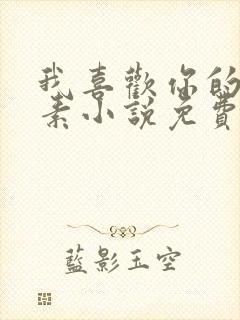 我喜歡你的
素小說免費
藍影玉空